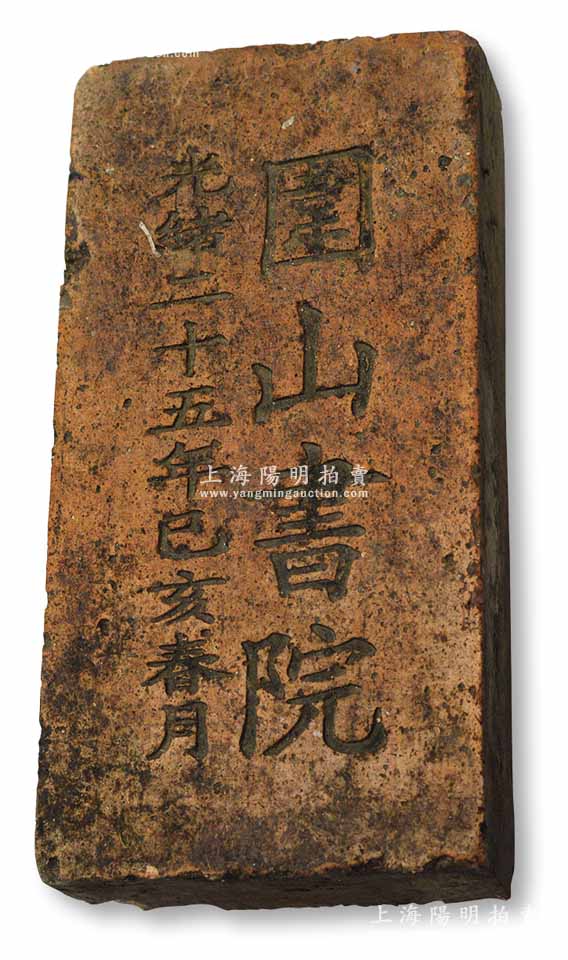 圍山書院
光緒二十五年己亥春月
上海陽明拍賣
www.yangmingauction.com
上海陽明拍賣